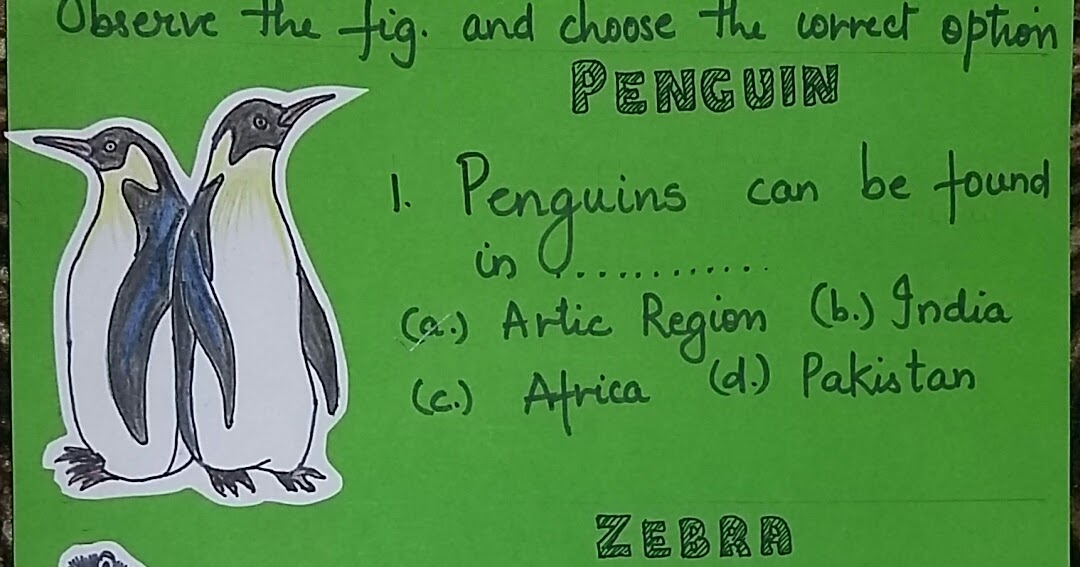 Observe the fig. and choose the correct option
PENGUIN
1. Penguins can be found
in ............
(a.) Artic Region (b.) India
(c.) Africa (d.) Pakistan
ZEBRA